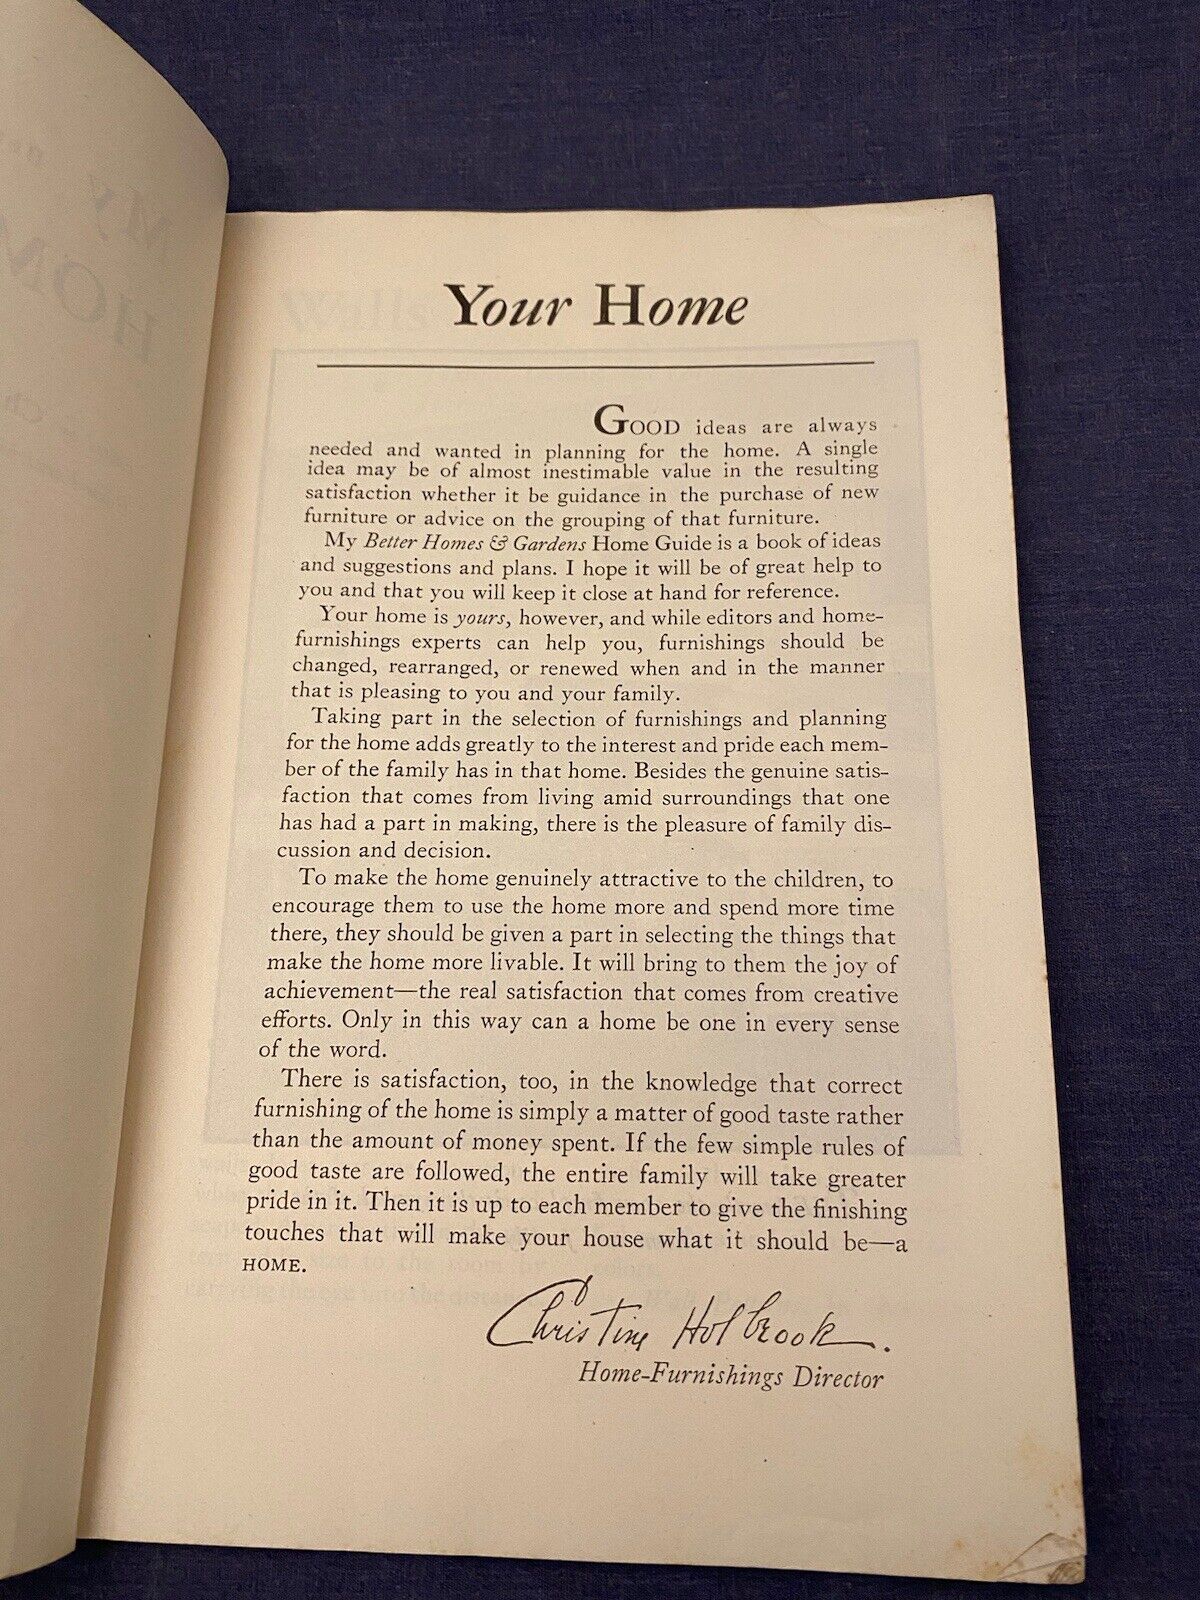 My
HOM
Your Home
GOOD ideas are always
needed and wanted in planning for the home. A single
idea may be of almost inestimable value in the resulting
satisfaction whether it be guidance in the purchase of new
furniture or advice on the grouping of that furniture.
My Better Homes & Gardens Home Guide is a book of ideas
and suggestions and plans. I hope it will be of great help to
you and that you will keep it close at hand for reference.
Your home is yours, however, and while editors and home-
furnishings experts can help you, furnishings should be
changed, rearranged, or renewed when and in the manner
that is pleasing to you and your family.
Taking part in the selection of furnishings and planning
for the home adds greatly to the interest and pride each mem-
ber of the family has in that home. Besides the genuine satis-
faction that comes from living amid surroundings that one
has had a part in making, there is the pleasure of family dis-
cussion and decision.
To make the home genuinely attractive to the children, to
encourage them to use the home more and spend more time
there, they should be given a part in selecting the things that
make the home more livable. It will bring to them the joy of
achievement—the real satisfaction that comes from creative
efforts. Only in this way can a home be one in every sense
of the word.
There is satisfaction, too, in the knowledge that correct
furnishing of the home is simply a matter of good taste rather
than the amount of money spent. If the few simple rules of
good taste are followed, the entire family will take greater
pride in it. Then it is up to each member to give the finishing
touches that will make your house what it should be—a
HOME.
Christine Holbrook.
Home-Furnishings Director